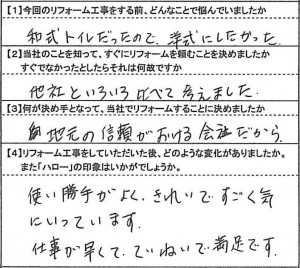 【1】今回のリフォーム工事をする前、どんなことで悩んでいましたか
和式トイレだったので、洋式にしたかった。
【2】当社のことを知って、すぐにリフォームを頼むことを決めましたか
すぐでなかったとしたらそれは何故ですか
他社といろいろ比べて考えました。
【3】何が決め手となって、当社でリフォームすることに決めましたか
地元の信頼がおける会社だから。
【4】リフォーム工事をしていただいた後、どのような変化がありましたか。
また「ハロー」の印象はいかがでしょうか。
使い勝手がよく、きれいで、すごく気
にいっています。
仕事が早くて、ていねいで、満足です。